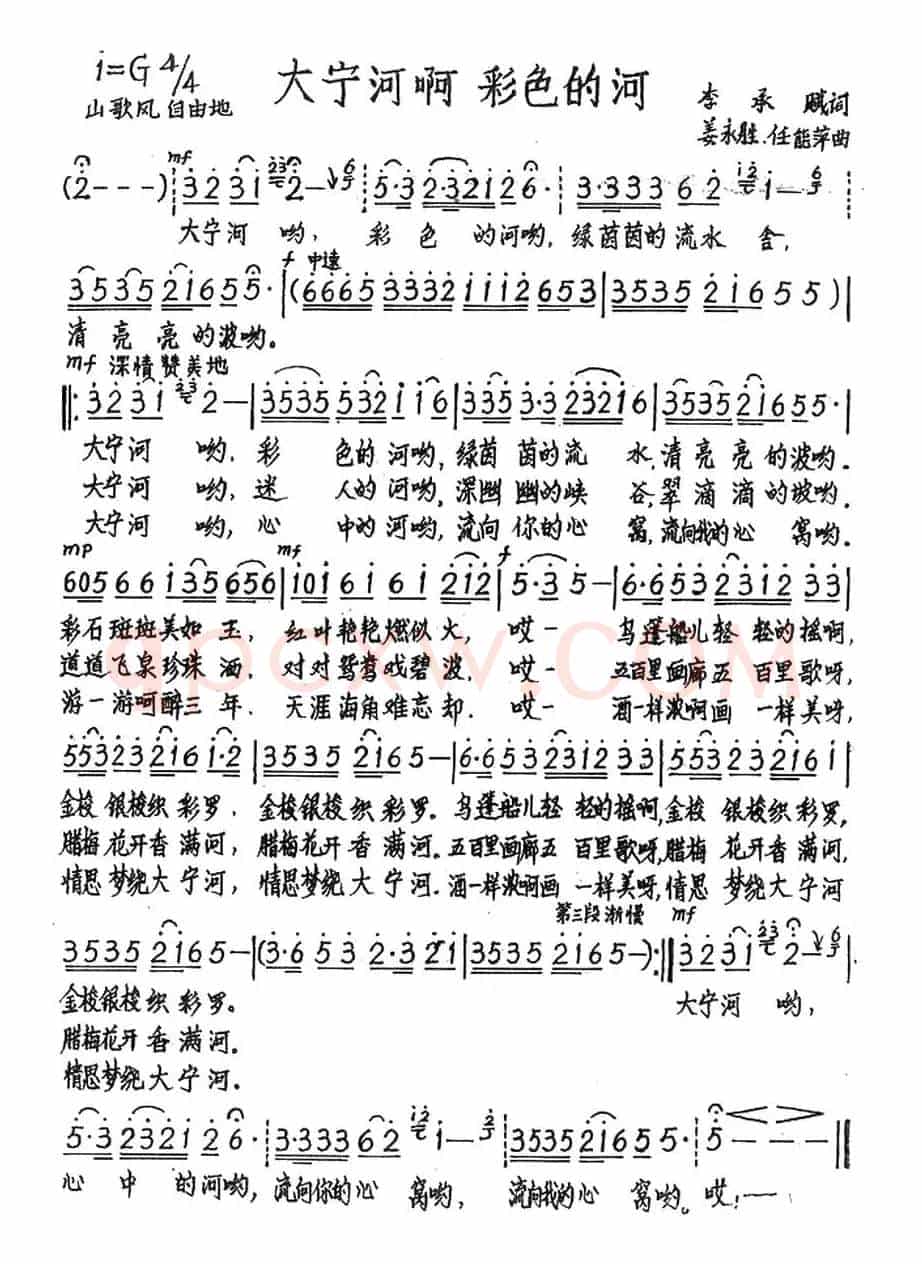 1=G 4/4
大宁河啊 彩色的河
山歌风 自由地
李承赋词
姜永胜.任能萍曲
mf
(2---) 3 2 3 1 2— 5·3 2·3 2 1 2 6· 3·3 3 3 6 2 1—
大宁河 哟， 彩 色 的河哟，绿茵茵的流水 舍，
f 中速
3535 2165 55· (6665 3332 1112 653 3535 216 55)
清亮亮的波哟。
mf 深情赞美地
3 2 3 1 2— 3535 532 1 1 6 335 3·3 232 16 3535 216 55·
大宁河 哟，彩 色的河哟，绿茵茵的流 水，清亮亮的波哟。
大宁河 哟，迷 人的河哟，深幽幽的峡 谷，翠滴滴的坡哟。
大宁河 哟，心 中的河哟，流向你的心 窝，流向我的心 窝哟。
mp mf f
605 66 135 656 101 61 61 212 5·3 5— 6·6 53 2312 33
彩石斑斑美如 玉， 红叶艳艳燃似火， 哎— 乌篷船儿轻 轻的摇啊，
道道飞泉珍珠 洒， 对对鸳鸯戏碧波， 哎— 五百里画廊五 百里歌呀，
游一游呵醉三 年， 天涯海角难忘却． 哎— 酒一样浓啊画 一样美呀，
553 23 216 1·2 3535 2165— 6·6 53 2312 33 553 23 216 1
金梭 银梭织 彩罗， 金梭银梭织 彩罗。乌篷船儿轻 轻的摇啊，金梭 银梭织彩罗，
腊梅 花开香 满河， 腊梅花开香 满河．五百里画廊五 百里歌呀，腊梅 花开香满河，
情思 梦绕大宁河， 情思梦绕大宁河．酒一样浓啊画 一样美呀，情思 梦绕大宁河
第三段渐慢 mf
3535 2165— (3·6 53 2·3 21 3535 2165—) 3 2 3 1 2—
金梭银梭织 彩罗。 大宁河 哟，
腊梅花开香满河．
情思梦绕大宁河．
5·3 2321 2 6· 3·333 62 1— 3535 2165 5· 5———
心 中 的河哟，流向你的心 窝哟， 流向我的心 窝哟。哎！——